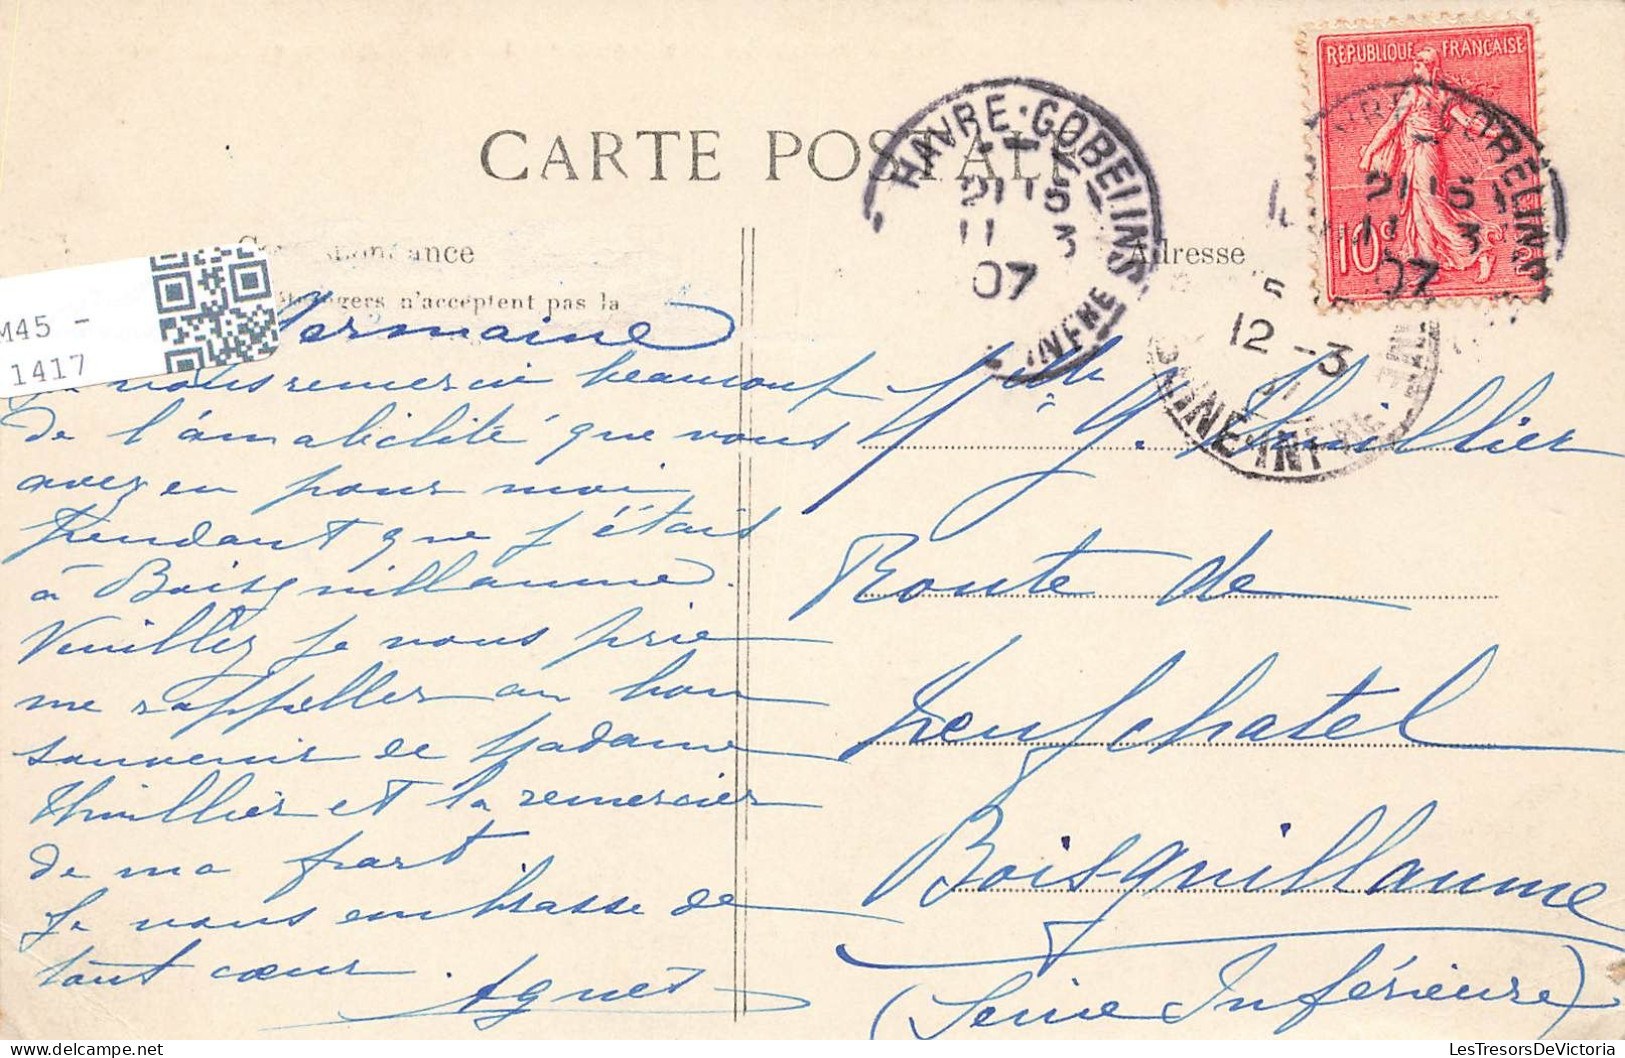 CARTE POSTALE
Correspondance
Etrangers n'acceptent pas la
M45 -
1417
Germaine
Je vous remercie beaucoup
de l'amabilité que vous
avez eu pour moi
pendant que j'étais
à Boisguillaume.
Veuillez je vous prie
me rappeller au bon
souvenir de Madame
Thuillier et la remercier
de ma part
Je vous embrasse de
tout cœur.
Agnès
Adresse
Mlle G. Thuillier
Route de
Neufchatel
Boisguillaume
(Seine Inférieure)
HAVRE-GOBELINS
21 15
11 3
07
INFRE
REPUBLIQUE FRANÇAISE
10c
GOBELINS
21 15
11 3
07
12 -3
SEINE-INFRE
LesTresorsDeVictoria